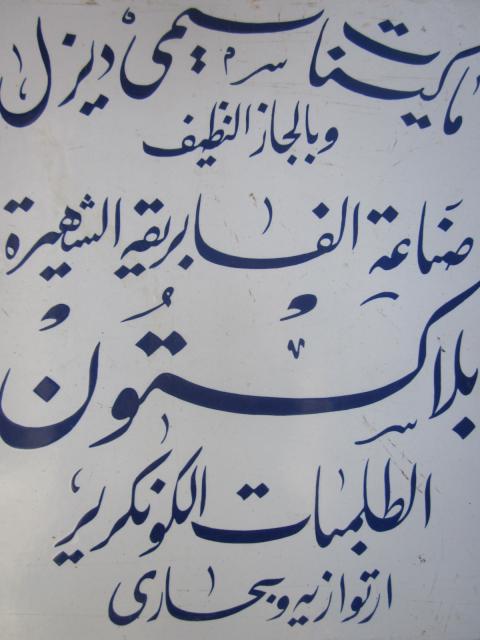 ماكينات سيمى ديزل
وبالجاز النظيف
صناعة الفابريقة الشهيرة
بلاكستون
الطلمبات الكونكرير
ارتوازيه وبحارى